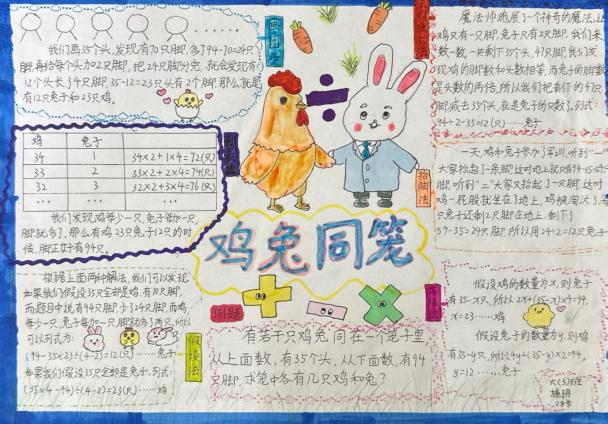 我们画35个头,发现有70只脚,多了94-70=24只
脚,再给每个头加2只脚,把24只脚分完,就会发现有
12个头长了4只脚,35-12=23只头有2个脚,那么就是
有12只兔子和23只鸡。
鸡 兔子
34 1 34×2+1×4=72(只)
33 2 33×2+2×4=74(只)
32 3 32×2+3×4=76(只)
... ... ...
我们发现鸡每少一只,兔子每加一只,
脚就多了,那么有鸡23只兔子12只的时
候,脚正好有94只。
根据上面两种解法,我们可以发现
如果我们假设35只全部是鸡,有70只脚,
而题目中说有94只脚,少了24只脚,而鸡
每少一只,兔子每加一只,脚就多两只,所以
可以列式为:
(94-35×2)÷(4-2)=12(只)……兔子
如果我们假设35只全部是兔子,列式:
(35×4-94)÷(4-2)=23(只)……鸡
假设法
鸡兔同笼
例题
有若干只鸡兔同在一个笼子里
从上面数,有35个头,从下面数,有94
只脚,求笼中各有几只鸡和兔?
魔法师施展了一个神奇的魔法,让
鸡只有一只脚,兔子只有2只脚,我们来
数一数,一共剩下35个头,47只脚,我们发
现鸡的脚数和头数相等,而兔子的脚数
是头数的两倍,所以我们把剩下的47只
脚减去35个头,就是兔子的只数了,列式:
94÷2-35=12(只)……兔子
抬脚法
一天,鸡和兔子参加了军训,听到"一"
大家抬起了一条脚,这时地上就只有94-35=59只
脚,听到"二"大家又抬起了一只脚,这时
鸡一屁股就坐在了地上,鸡被淘汰了,
只兔子还剩2只脚在地上,剩下了
59-35=24只脚,所以用24÷2=12只兔子
假设鸡的数量为x,则兔子
有35-x只,所以2x+(35-x)×4=94,
x=23……鸡
假设兔子的数量为y,则鸡
有35-y只,所以4y+(35-y)×2=94,
y=12……兔子
六(3)班
28号